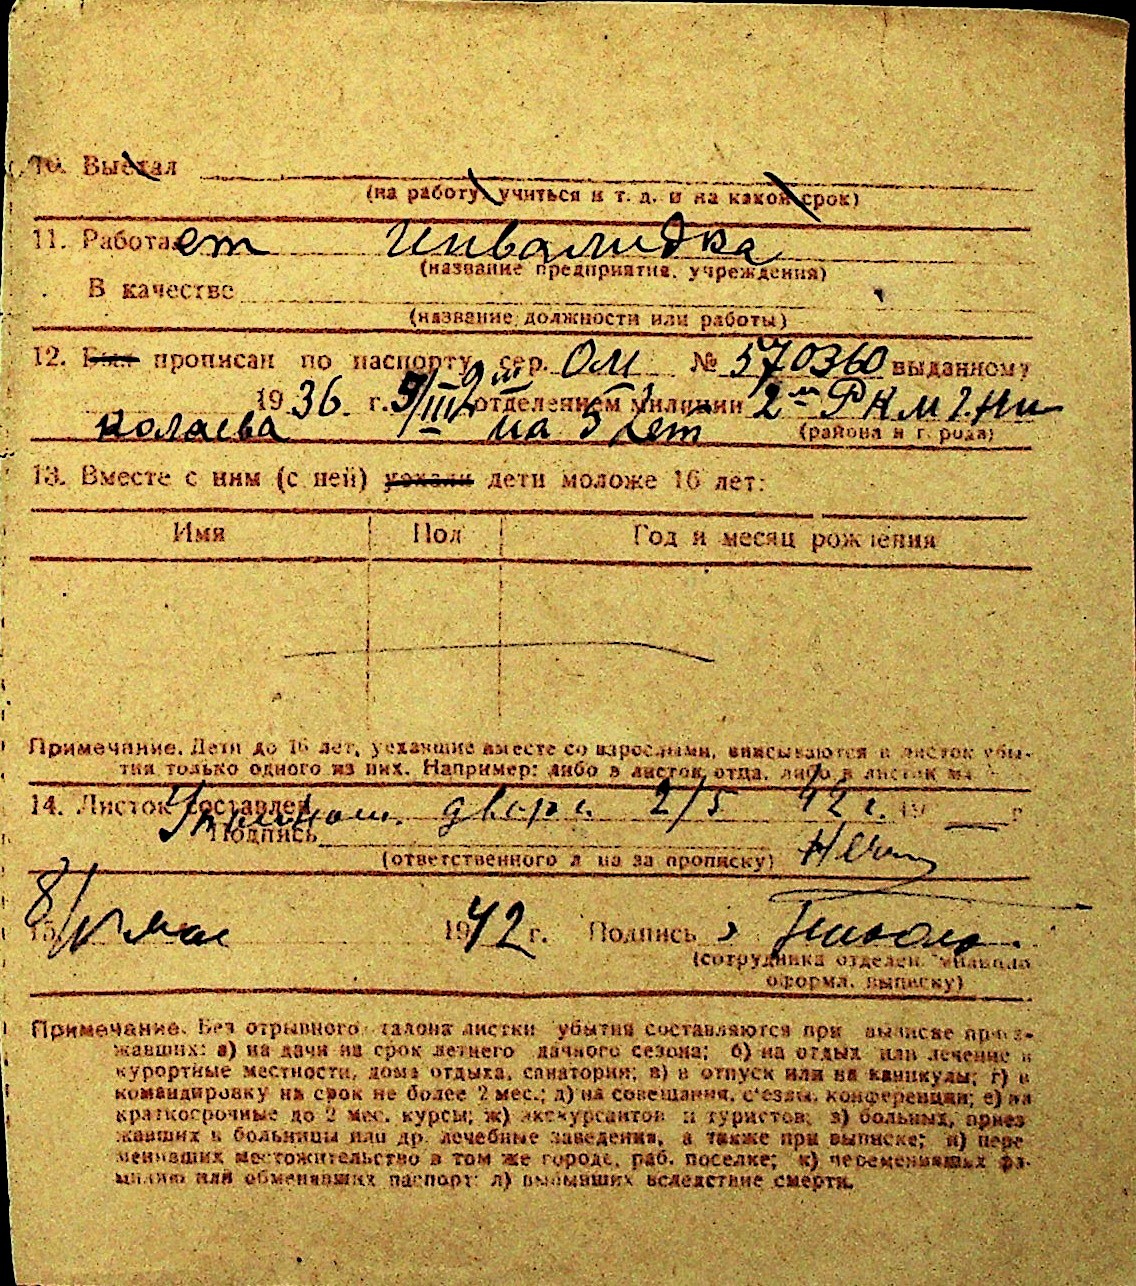 10. Выехал
(на работу, учиться и т. д. и на какой срок)
11. Работает Инвалидка
(название предприятия, учреждения)
В качестве
(название должности или работы)
12. Был прописан по паспорту сер. ОМ № 570360 выданному
1936 г. 9/III отделением милиции 2м РКМ г. Ни
колаева на 5 лет (района и города)
13. Вместе с ним (с ней) уехали дети моложе 16 лет:
Имя Пол Год и месяц рождения
Примечание. Дети до 16 лет, уехавшие вместе со взрослыми, вписываются в листок убы-
тия только одного из них. Например: либо в листок отца, либо в листок
14. Листок составлен двора 2/5 42 г. 19 г
Подпись
(ответственного лица за прописку)
15. 8/V мая 1942 г. Подпись
(сотрудника отделен. милиции
оформл. выписку)
Примечание. Без отрывного талона листки убытия составляются при выписке приез-
жавших: а) на дачи на срок летнего дачного сезона; б) на отдых или лечение в
курортные местности, дома отдыха, санатории; в) в отпуск или на каникулы; г) в
командировку на срок не более 2 мес.; д) на совещания, с'езды, конференции; е) на
краткосрочные до 2 мес. курсы; ж) экскурсантов и туристов; з) больных, приез
жавших в больницы или др. лечебные заведения, а также при выписке; и) пере
менивших местожительство в том же городе, раб. поселке; к) переменивших фа-
милию или обменявших паспорт; л) выбывших вследствие смерти.